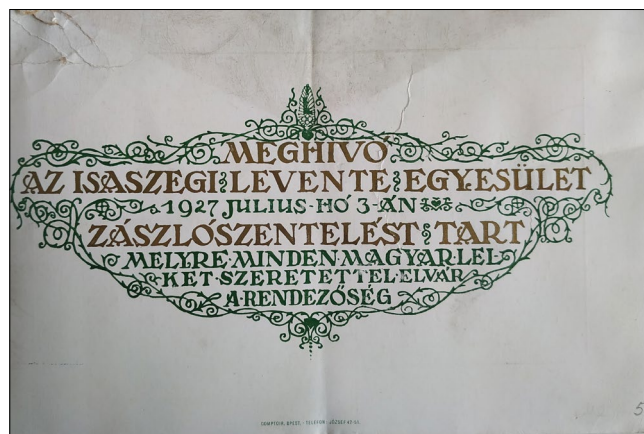 MEGHIVÓ
AZ ISASZEGI LEVENTE EGYESÜLET
1927 JULIUS·HÓ 3-ÁN
ZÁSZLÓSZENTELÉST TART
MELYRE·MINDEN·MAGYAR·LEL-
KET·SZERETETTEL·ELVÁR
A·RENDEZŐSÉG
5